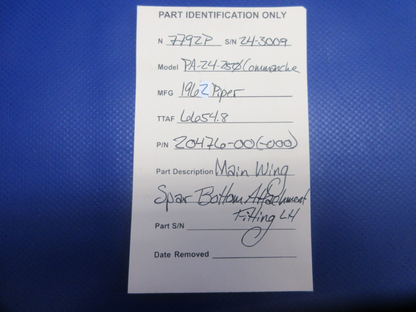 PART IDENTIFICATION ONLY
N 7792P S/N 24-3009
Model PA-24-250/Comanche
MFG 1962 Piper
TTAF 6654.8
P/N 20476-00(-000)
Part Description Main Wing
Spar Bottom Attachment
Fitting LH
Part S/N
Date Removed